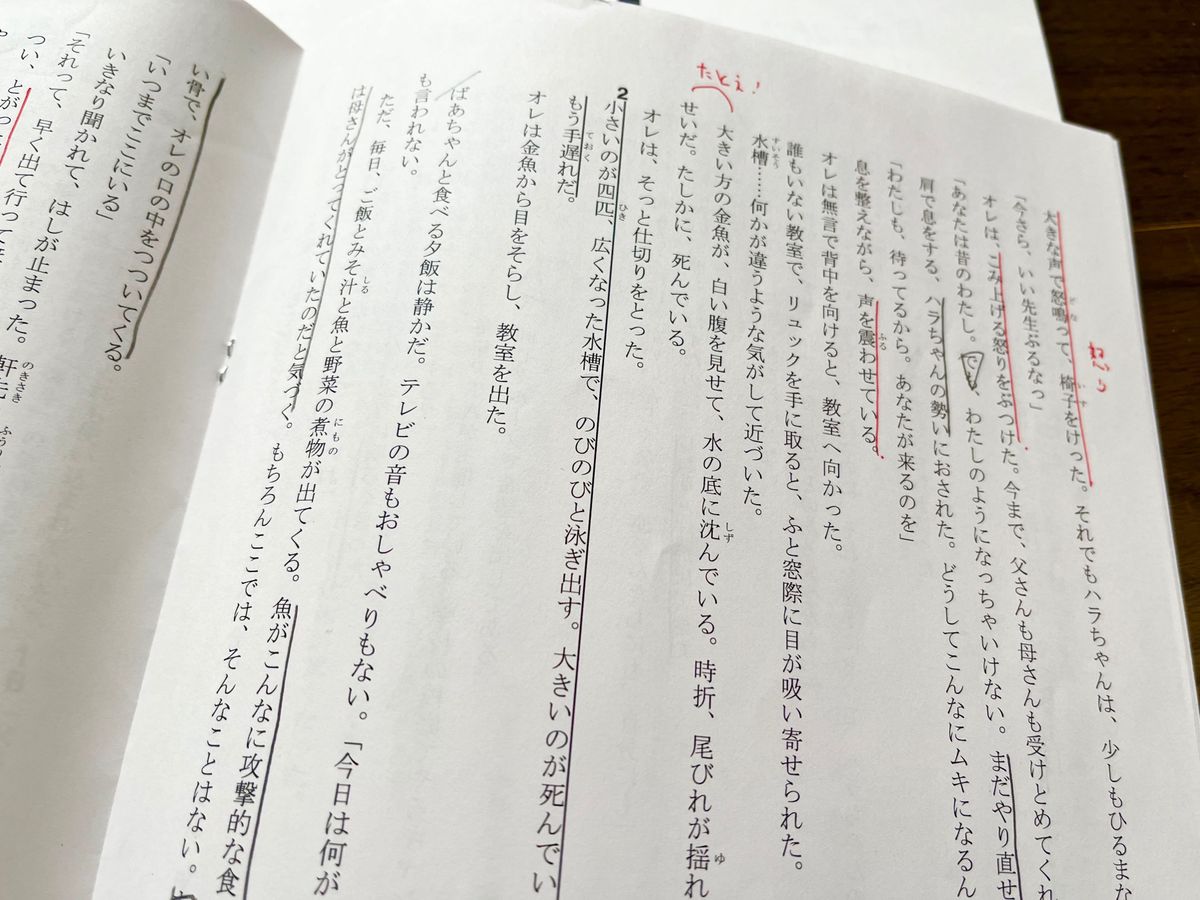 大きな声で怒鳴って、椅子をけった。それでもハラちゃんは、少しもひるまな
「今さら、いい先生ぶるなっ」
オレは、こみ上げる怒りをぶつけた。今まで、父さんも母さんも受けとめてくれ
「あなたは昔のわたし。でも、わたしのようになっちゃいけない。まだやり直せ
肩で息をする、ハラちゃんの勢いにおされた。どうしてこんなにムキになるん
「わたしも、待ってるから。あなたが来るのを」
息を整えながら、声を震わせている。
オレは無言で背中を向けると、教室へ向かった。
誰もいない教室で、リュックを手に取ると、ふと窓際に目が吸い寄せられた。
水槽……何かが違うような気がして近づいた。
たとえ!
大きい方の金魚が、白い腹を見せて、水の底に沈んでいる。時折、尾びれが揺れ
せいだ。たしかに、死んでいる。
オレは、そっと仕切りをとった。
2
小さいのが四匹、広くなった水槽で、のびのびと泳ぎ出す。大きいのが死んでい
もう手遅れだ。
オレは金魚から目をそらし、教室を出た。
ばあちゃんと食べる夕飯は静かだ。テレビの音もおしゃべりもない。「今日は何が
も言われない。
ただ、毎日、ご飯とみそ汁と魚と野菜の煮物が出てくる。魚がこんなに攻撃的な食
は母さんがとってくれていたのだと気づく。もちろんここでは、そんなことはない。
い骨で、オレの口の中をつついてくる。
「いつまでここにいる」
いきなり聞かれて、はしが止まった。
「それって、早く出て行って
つい、とがった